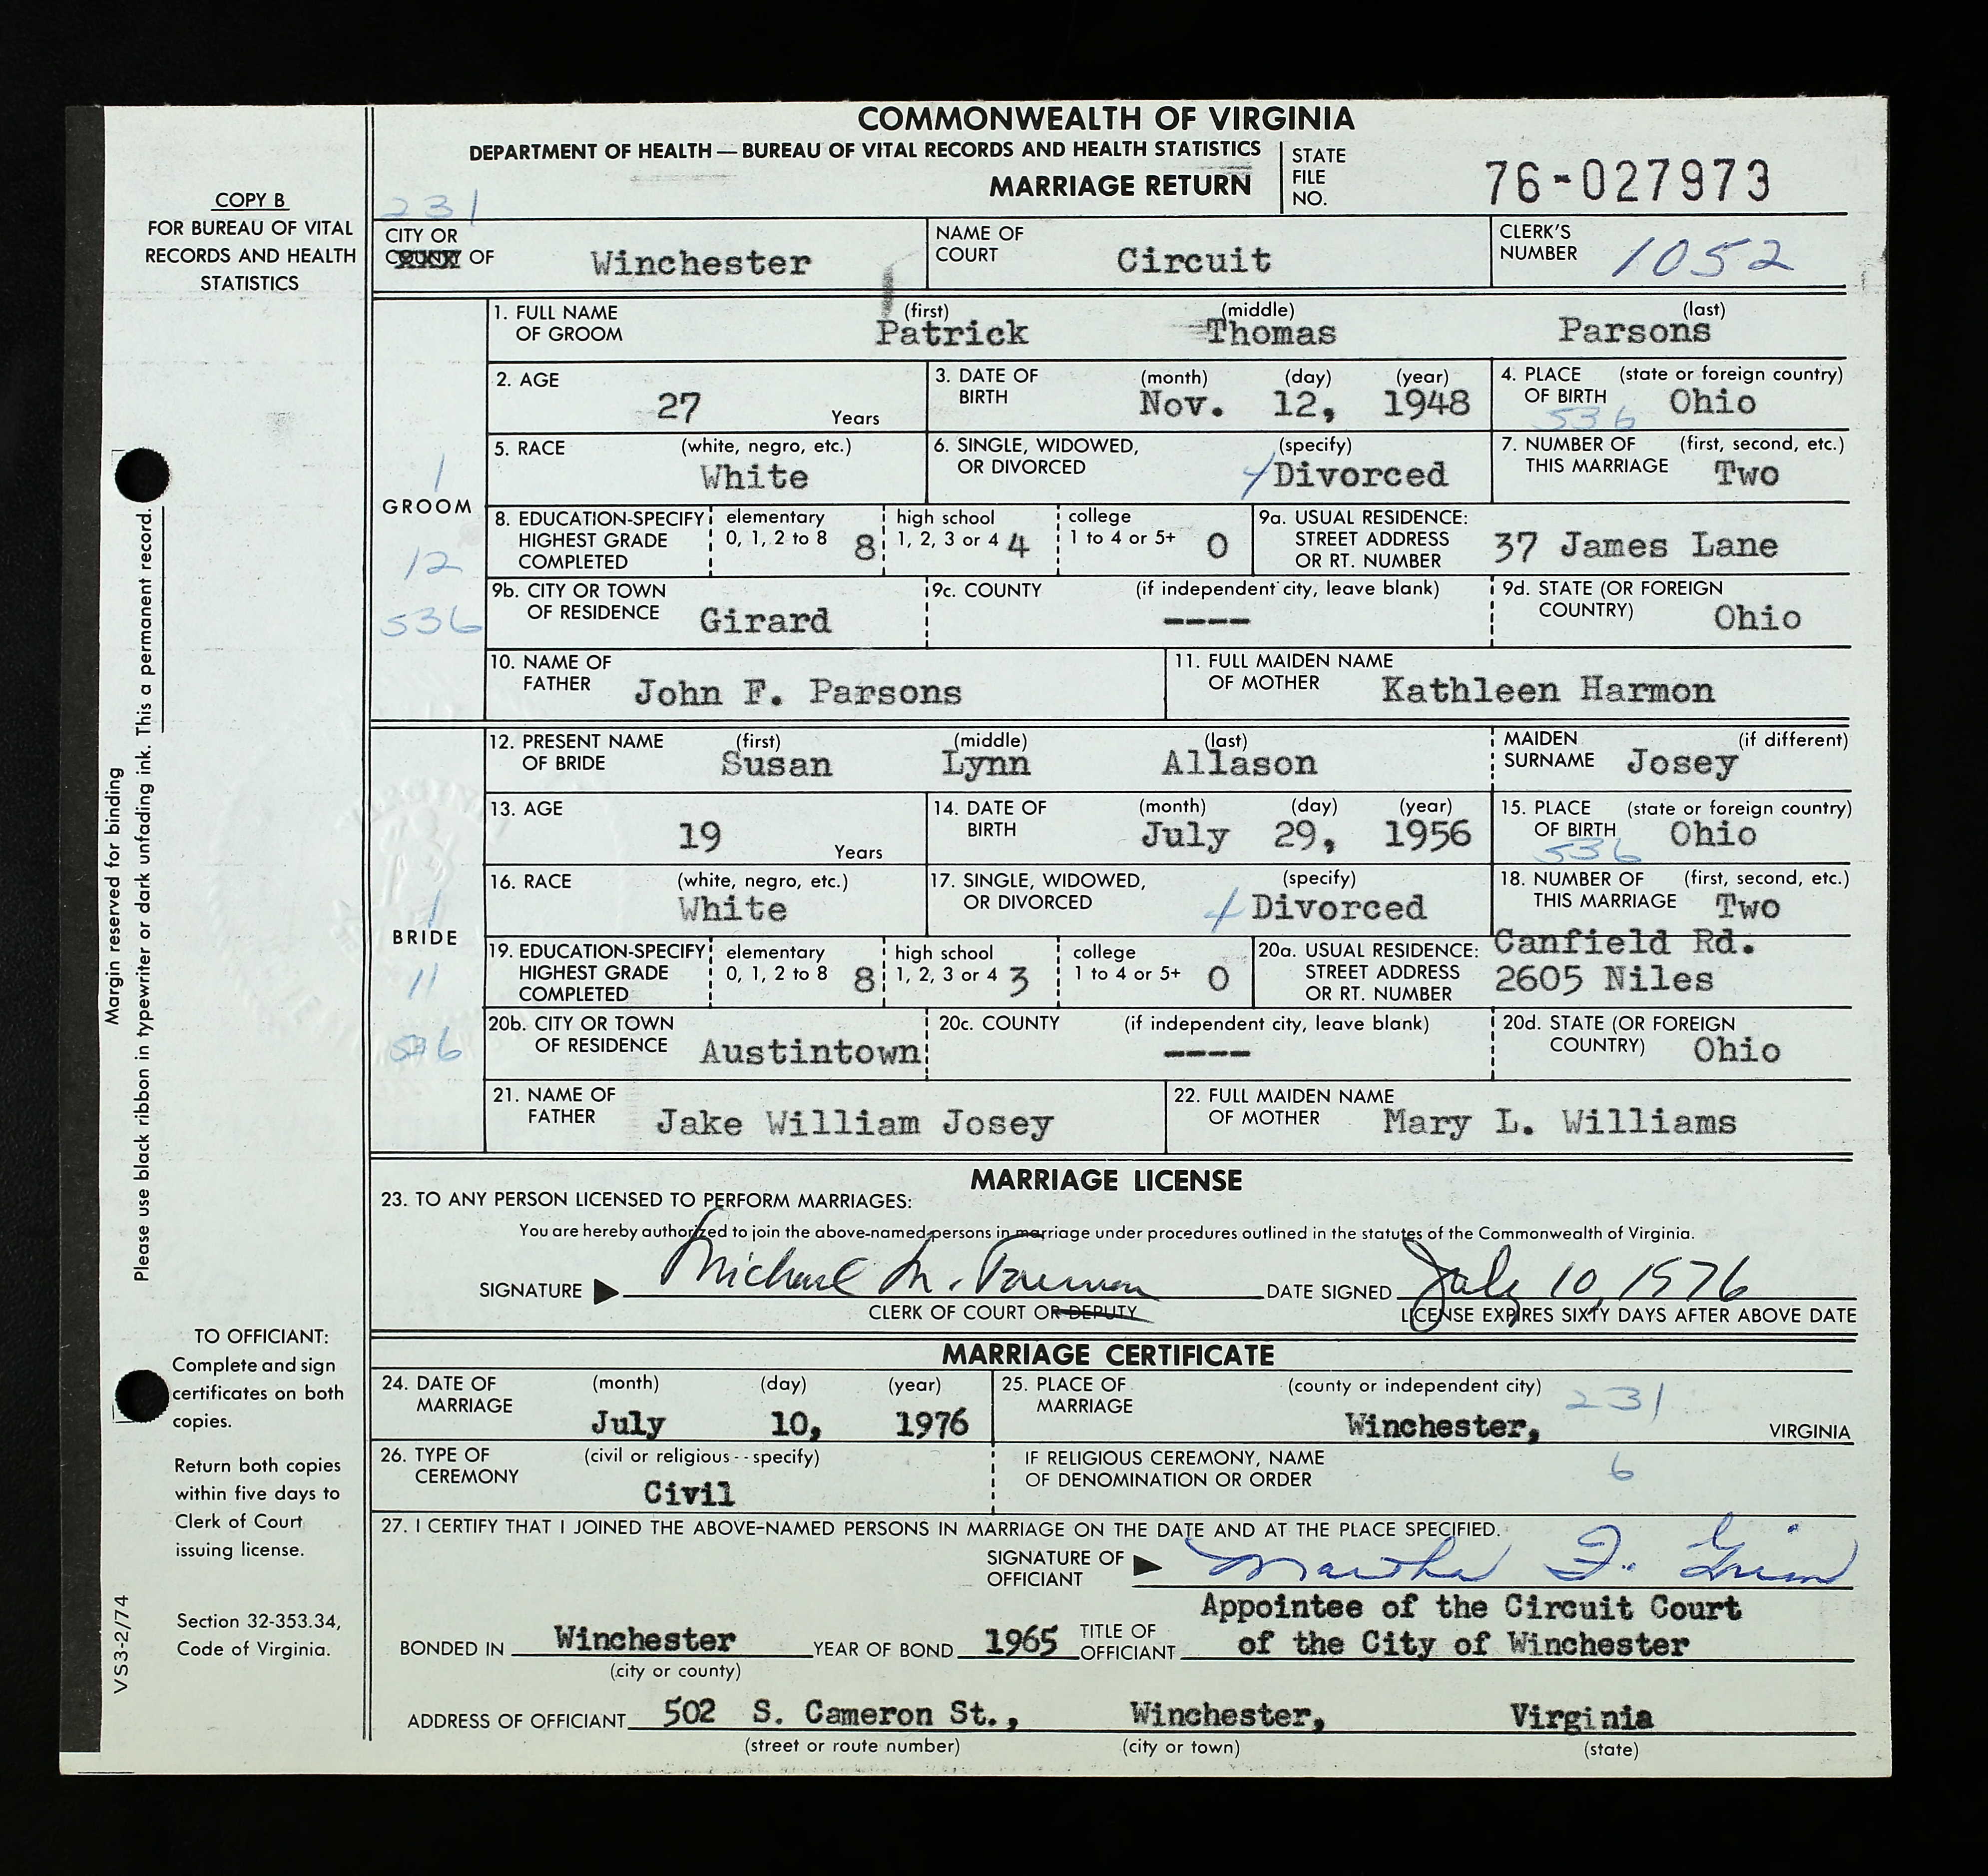 COMMONWEALTH OF VIRGINIA
DEPARTMENT OF HEALTH — BUREAU OF VITAL RECORDS AND HEALTH STATISTICS
MARRIAGE RETURN
STATE FILE NO. 76-027973
COPY B
FOR BUREAU OF VITAL
RECORDS AND HEALTH
STATISTICS
231
CITY OR COUNTY OF Winchester
NAME OF COURT Circuit
CLERK'S NUMBER 1052
1. FULL NAME OF GROOM (first) Patrick (middle) Thomas (last) Parsons
2. AGE 27 Years
3. DATE OF BIRTH (month) Nov. (day) 12, (year) 1948
4. PLACE OF BIRTH (state or foreign country) Ohio 536
5. RACE (white, negro, etc.) White
6. SINGLE, WIDOWED, OR DIVORCED (specify) 4 Divorced
7. NUMBER OF THIS MARRIAGE (first, second, etc.) Two
1
GROOM
12
536
8. EDUCATION-SPECIFY HIGHEST GRADE COMPLETED elementary 0, 1, 2 to 8 8 high school 1, 2, 3 or 4 4 college 1 to 4 or 5+ 0
9a. USUAL RESIDENCE: STREET ADDRESS OR RT. NUMBER 37 James Lane
9b. CITY OR TOWN OF RESIDENCE Girard
9c. COUNTY (if independent city, leave blank) ----
9d. STATE (OR FOREIGN COUNTRY) Ohio
10. NAME OF FATHER John F. Parsons
11. FULL MAIDEN NAME OF MOTHER Kathleen Harmon
12. PRESENT NAME OF BRIDE (first) Susan (middle) Lynn (last) Allason
MAIDEN SURNAME (if different) Josey
13. AGE 19 Years
14. DATE OF BIRTH (month) July (day) 29, (year) 1956
15. PLACE OF BIRTH (state or foreign country) Ohio 536
16. RACE (white, negro, etc.) White
17. SINGLE, WIDOWED, OR DIVORCED (specify) 4 Divorced
18. NUMBER OF THIS MARRIAGE (first, second, etc.) Two
1
BRIDE
11
536
19. EDUCATION-SPECIFY HIGHEST GRADE COMPLETED elementary 0, 1, 2 to 8 8 high school 1, 2, 3 or 4 3 college 1 to 4 or 5+ 0
20a. USUAL RESIDENCE: STREET ADDRESS OR RT. NUMBER Canfield Rd.
2605 Niles
20b. CITY OR TOWN OF RESIDENCE Austintown
20c. COUNTY (if independent city, leave blank) ----
20d. STATE (OR FOREIGN COUNTRY) Ohio
21. NAME OF FATHER Jake William Josey
22. FULL MAIDEN NAME OF MOTHER Mary L. Williams
MARRIAGE LICENSE
23. TO ANY PERSON LICENSED TO PERFORM MARRIAGES:
You are hereby authorized to join the above-named persons in marriage under procedures outlined in the statutes of the Commonwealth of Virginia.
SIGNATURE Michael M. DATE SIGNED July 10, 1976
CLERK OF COURT OR DEPUTY
LICENSE EXPIRES SIXTY DAYS AFTER ABOVE DATE
MARRIAGE CERTIFICATE
24. DATE OF MARRIAGE (month) July (day) 10, (year) 1976
25. PLACE OF MARRIAGE (county or independent city) 231 Winchester, VIRGINIA
26. TYPE OF CEREMONY (civil or religious--specify) Civil
IF RELIGIOUS CEREMONY, NAME OF DENOMINATION OR ORDER 6
27. I CERTIFY THAT I JOINED THE ABOVE-NAMED PERSONS IN MARRIAGE ON THE DATE AND AT THE PLACE SPECIFIED.
SIGNATURE OF OFFICIANT Martha F. Grim
BONDED IN Winchester (city or county) YEAR OF BOND 1965 TITLE OF OFFICIANT Appointee of the Circuit Court
of the City of Winchester
ADDRESS OF OFFICIANT 502 S. Cameron St., Winchester, Virginia
(street or route number) (city or town) (state)
Margin reserved for binding
Please use black ribbon in typewriter or dark unfading ink. This a permanent record.
TO OFFICIANT:
Complete and sign
certificates on both
copies.
Return both copies
within five days to
Clerk of Court
issuing license.
Section 32-353.34,
Code of Virginia.
VS3-2/74